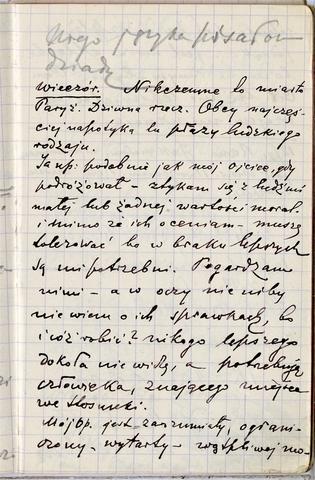 mego języka
Dziady
wieczór. Nikczemne to miasto
Paryż. Dziwna rzecz. Obcy najczęś-
ciej napotyka tu płazy ludzkiego
rodzaju.
Ja np: podobnie jak mój ojciec, gdy
podróżował – stykam się z ludźmi
małej lub żadnej wartości moral.
i mimo że ich oceniam – muszę
tolerować bo w braku lepszych
są mi potrzebni. Pogardzam
nimi – a w oczy nie niby
nie wiem o ich sprawkach, bo
i cóż robić? nikogo lepszego
dokoła nie widzę, a potrzebuję
człowieka, znającego miejsca
we stosunki.
Mój Bp. jest zarozumiały, ograni-
czony – wytarty – wątpliwej mo-